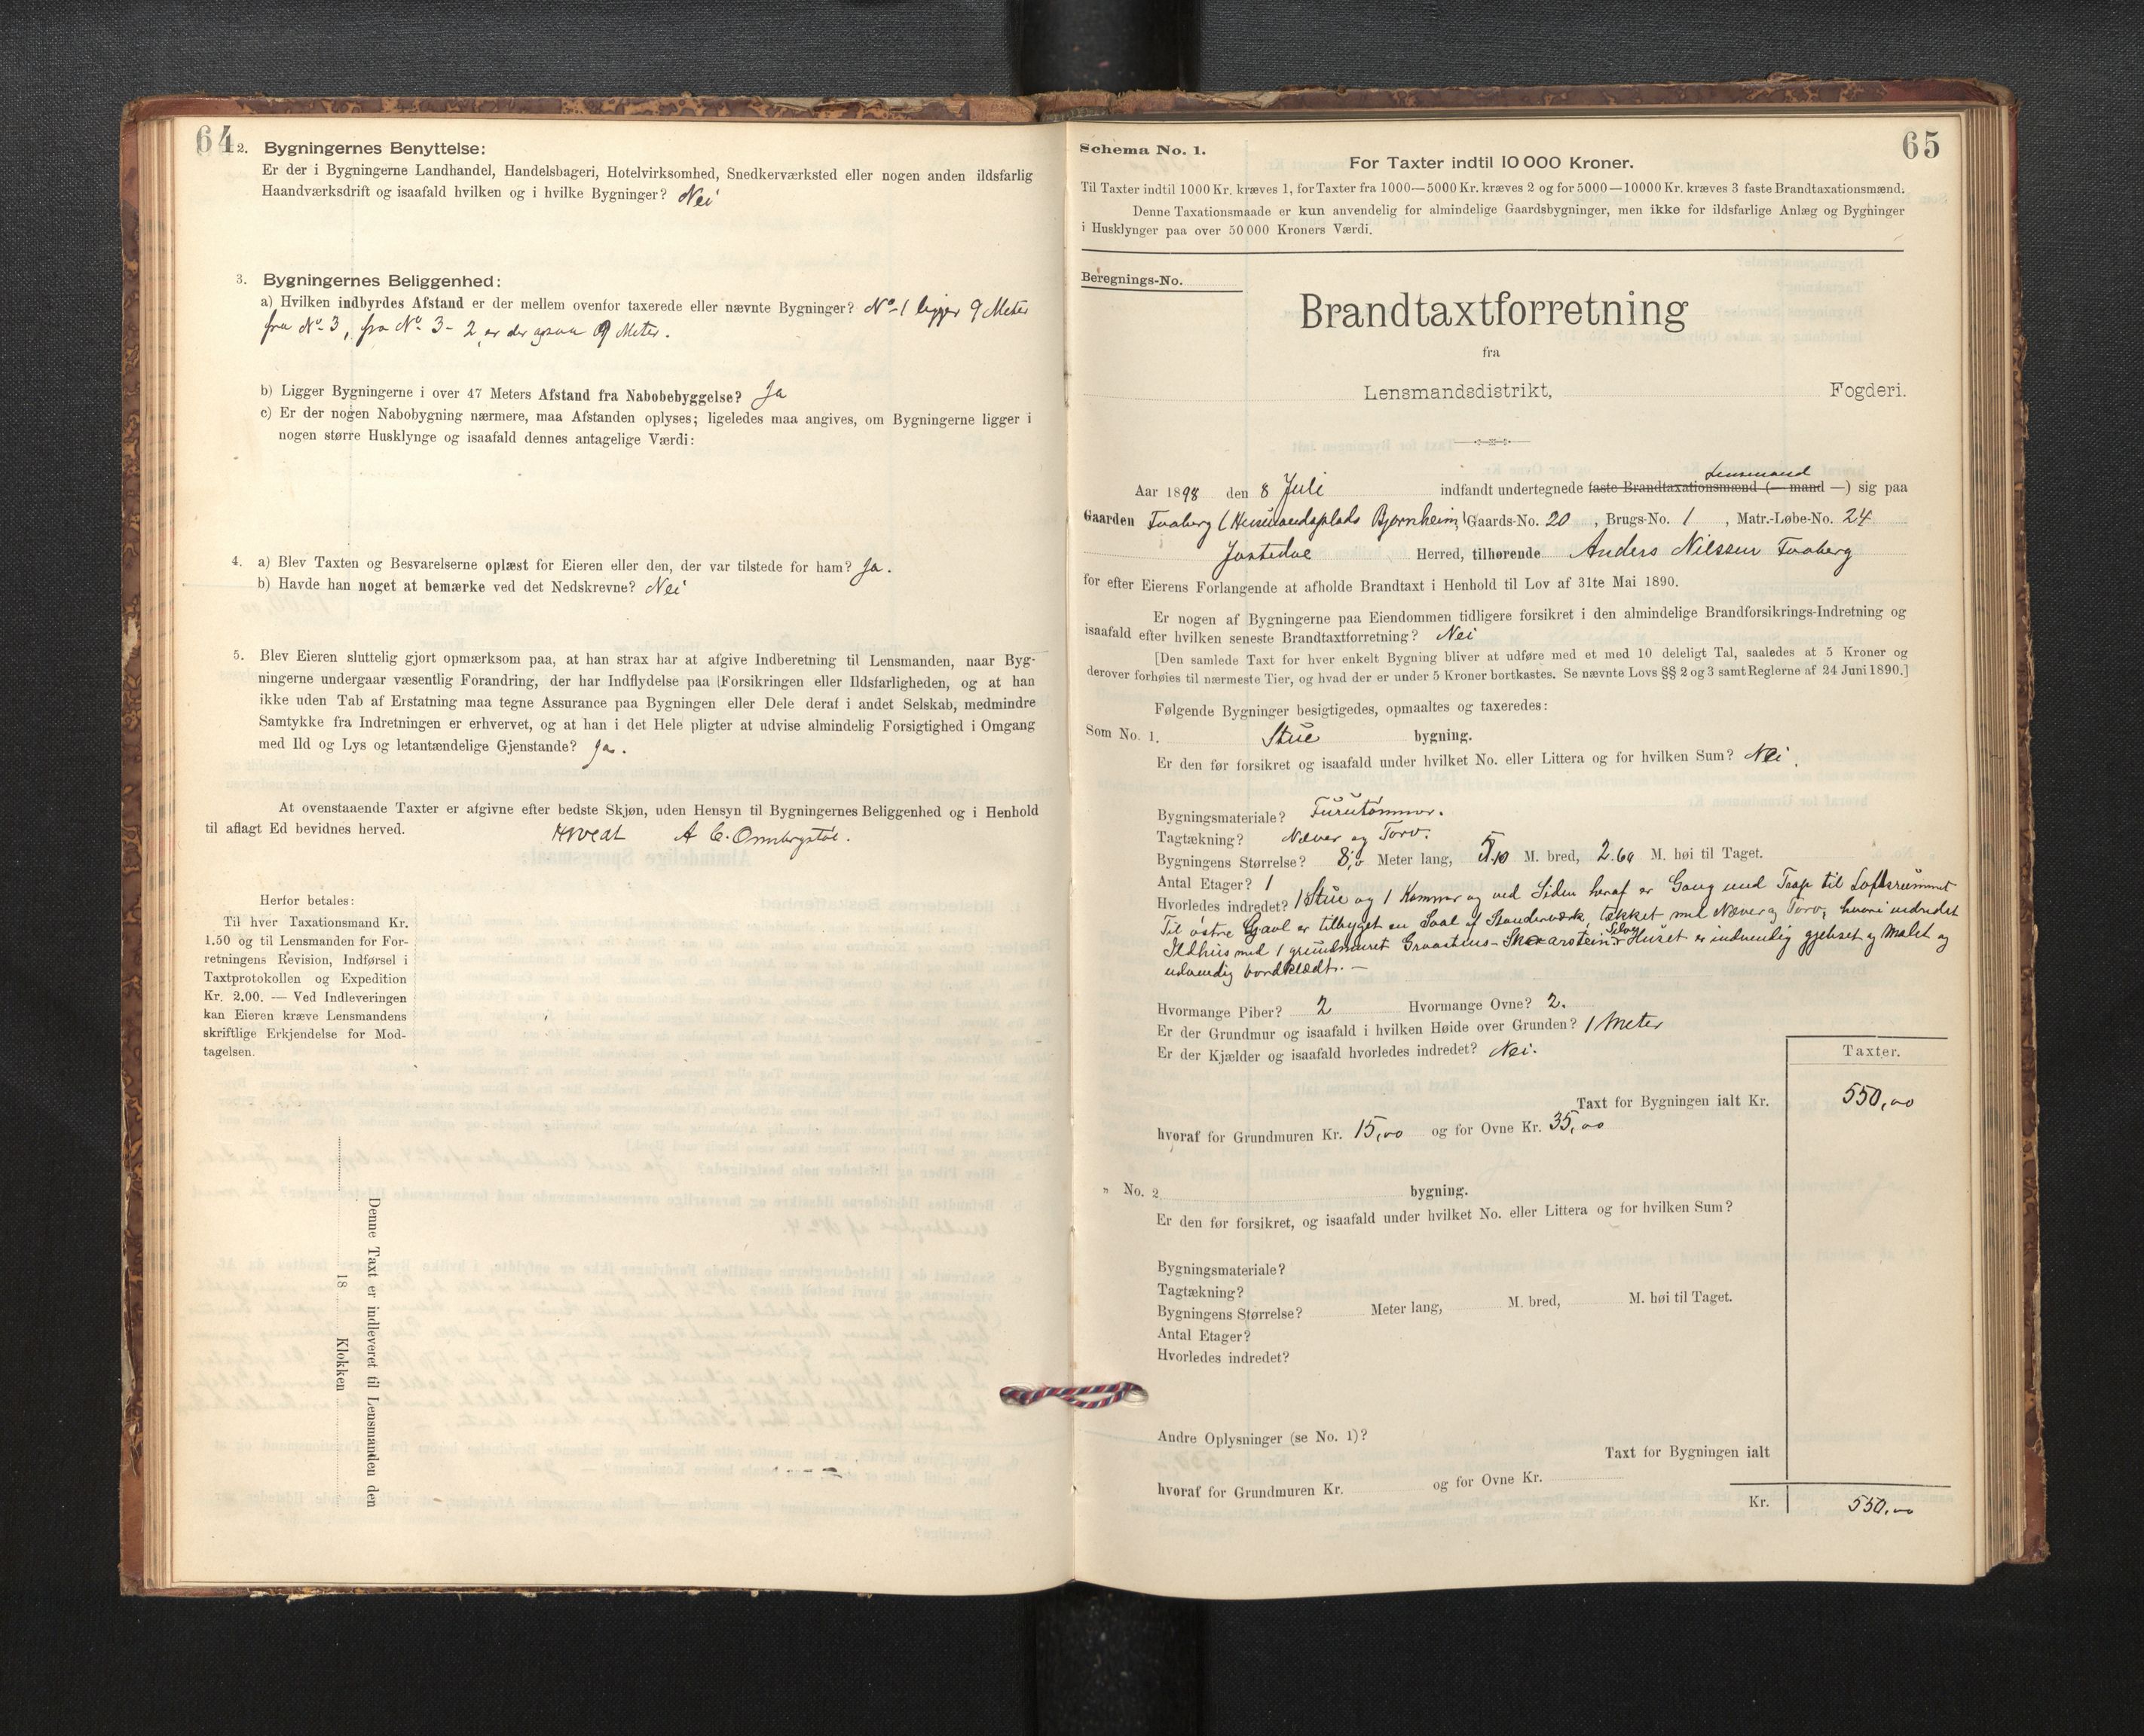 64
2. Bygningernes Benyttelse:
Er der i Bygningerne Landhandel, Handelsbageri, Hotelvirksomhed, Snedkerværksted eller nogen anden ildsfarlig
Haandværksdrift og isaafald hvilken og i hvilke Bygninger? Nei
3. Bygningernes Beliggenhed:
a) Hvilken indbyrdes Afstand er der mellem ovenfor taxerede eller nævnte Bygninger? No 1 ligger 9 Meter
fra No 3, fra No 3-2 er der ogsaa 9 Meter.
b) Ligger Bygningerne i over 47 Meters Afstand fra Nabobebyggelse? Ja
c) Er der nogen Nabobygning nærmere, maa Afstanden oplyses; ligeledes maa angives, om Bygningerne ligger i
nogen større Husklynge og isaafald dennes antagelige Værdi:
4. a) Blev Taxten og Besvarelserne oplæst for Eieren eller den, der var tilstede for ham? Ja.
b) Havde han noget at bemærke ved det Nedskrevne? Nei
5. Blev Eieren sluttelig gjort opmærksom paa, at han strax har at afgive Indberetning til Lensmanden, naar Byg-
ningerne undergaar væsentlig Forandring, der har Indflydelse paa Forsikringen eller Ildsfarligheden, og at han
ikke uden Tab af Erstatning maa tegne Assurance paa Bygningen eller Dele deraf i andet Selskab, medmindre
Samtykke fra Indretningen er erhvervet, og at han i det Hele pligter at udvise almindelig Forsigtighed i Omgang
med Ild og Lys og letantændelige Gjenstande? Ja.
At ovenstaaende Taxter er afgivne efter bedste Skjøn, uden Hensyn til Bygningernes Beliggenhed og i Henhold
til aflagt Ed bevidnes herved.
Herfor betales:
Til hver Taxationsmand Kr.
1.50 og til Lensmanden for For-
retningens Revision, Indførsel i
Taxtprotokollen og Expedition
Kr. 2.00. — Ved Indleveringen
kan Eieren kræve Lensmandens
skriftlige Erkjendelse for Mod-
tagelsen.
Denne Taxt er indleveret til Lensmanden den
18 Klokken
65
Schema No. 1.
For Taxter indtil 10 000 Kroner.
Til Taxter indtil 1000 Kr. kræves 1, for Taxter fra 1000—5000 Kr. kræves 2 og for 5000—10000 Kr. kræves 3 faste Brandtaxationsmænd.
Denne Taxationsmaade er kun anvendelig for almindelige Gaardsbygninger, men ikke for ildsfarlige Anlæg og Bygninger
i Husklynger paa over 50 000 Kroners Værdi.
Beregnings-No.
Brandtaxtforretning
fra
Lensmandsdistrikt, Fogderi.
Lensmand
Aar 1898 den 8 Juli indfandt undertegnede faste Brandtaxationsmænd (— mand —) sig paa
Gaarden Faaberg (Husmandsplads Bjørnheim) Gaards-No. 20, Brugs-No. 1, Matr.-Løbe-No. 24
Jostedal Herred, tilhørende Anders Nilssen Faaberg
for efter Eierens Forlangende at afholde Brandtaxt i Henhold til Lov af 31te Mai 1890.
Er nogen af Bygningerne paa Eiendommen tidligere forsikret i den almindelige Brandforsikrings-Indretning og
isaafald efter hvilken seneste Brandtaxtforretning? Nei
[Den samlede Taxt for hver enkelt Bygning bliver at udføre med et med 10 deleligt Tal, saaledes at 5 Kroner og
derover forhøies til nærmeste Tier, og hvad der er under 5 Kroner bortkastes. Se nævnte Lovs §§ 2 og 3 samt Reglerne af 24 Juni 1890.]
Følgende Bygninger besigtigedes, opmaaltes og taxeredes:
Som No. 1. Stue bygning.
Er den før forsikret og isaafald under hvilket No. eller Littera og for hvilken Sum? Nei.
Bygningsmateriale? Furutømmer.
Tagtækning? Næver og Torv.
Bygningens Størrelse? 8,0 Meter lang, 5.10 M. bred, 2.60 M. høi til Taget.
Antal Etager? 1
Hvorledes indredet? 1 Stue og 1 Kammer og ved Siden heraf er Gang med Trap til Loftsrummet
Til østre Gavl er tilbygget en Sval af Standerværk, tækket med Næver og Torv, hvori indredet
Ildhus med 1 grundmuret Graastens-Skorsten. Huset er indvendig gjibset og Malet og
udvendig bordklædt. —
Hvormange Piber? 2 Hvormange Ovne? 2.
Er der Grundmur og isaafald i hvilken Høide over Grunden? 1 Meter
Er der Kjælder og isaafald hvorledes indredet? Nei.
Taxter.
Taxt for Bygningen ialt Kr. 550,00
hvoraf for Grundmuren Kr. 15,00 og for Ovne Kr. 35,00
" No. 2 bygning.
Er den før forsikret, og isaafald under hvilket No. eller Littera og for hvilken Sum?
Bygningsmateriale?
Tagtækning?
Bygningens Størrelse? Meter lang, M. bred, M. høi til Taget.
Antal Etager?
Hvorledes indredet?
Andre Oplysninger (se No. 1)?
Taxt for Bygningen ialt
hvoraf for Grundmuren Kr. og for Ovne Kr.
Kr. 550,00